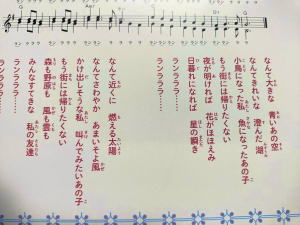 なんて大きな 青いあの空
なんてきれいな 澄んだ湖
小鳥になった私 魚になったあの子
もう街には帰りたくない
夜が明ければ 花がほほえみ
日暮れになれば 星の瞬き
ランラララ……
ランラララ……
なんて近くに 燃える太陽
なんてさわやか あまいそよ風
かけ出しそうな私 叫んでみたいあの子
もう街には帰りたくない
森も野原も 風も雲も
みんなすてきな 私の友達
ランラララ……
ランラララ……